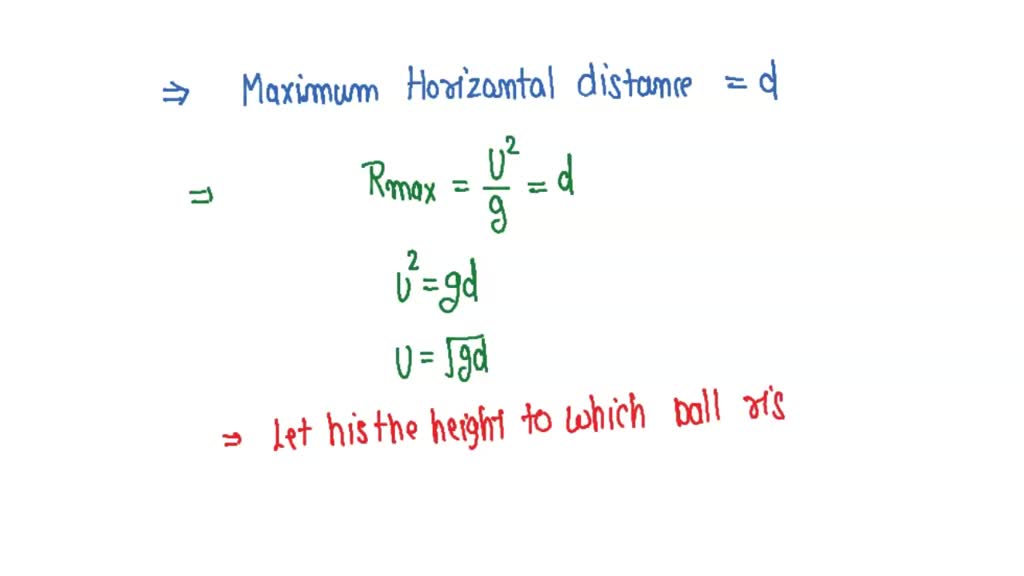 ⇒ Maximum Horizantal distance = d
⇒ Rmax = U²/g = d
U² = gd
U = √gd
⇒ Let his the height to which ball ris